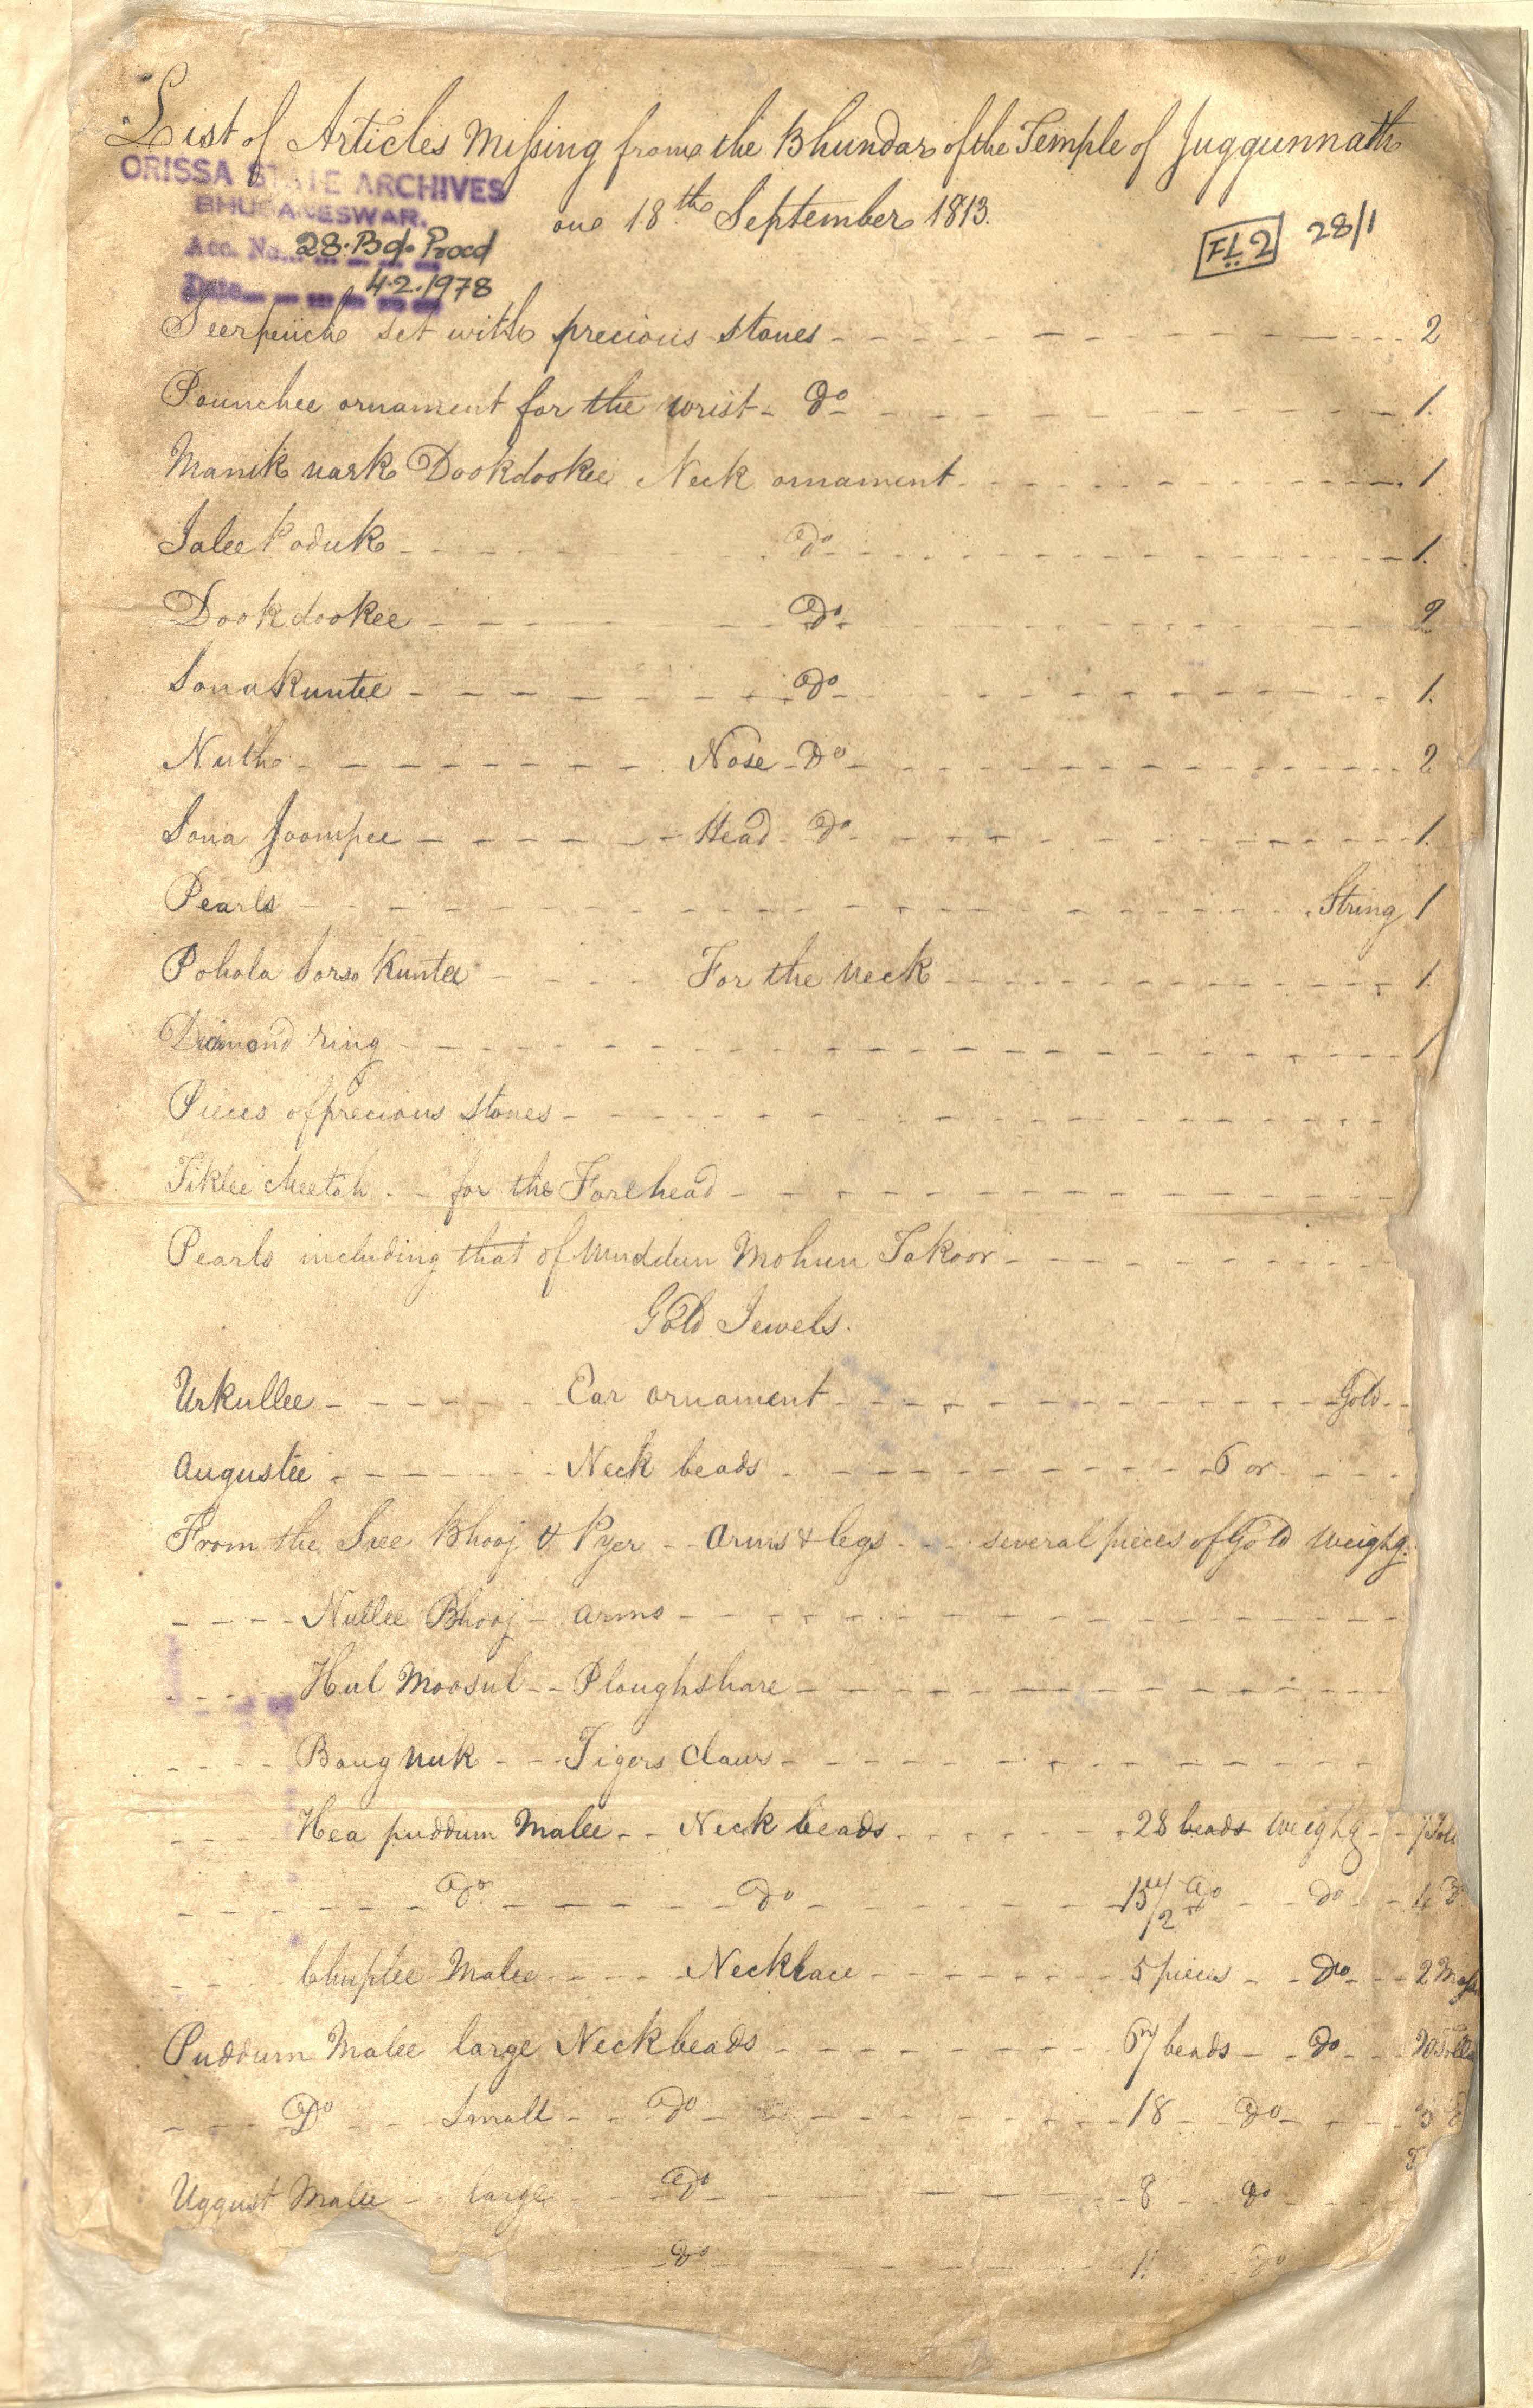 List of Articles Missing from the Bhundar of the Temple of Juggunnath
on 18th September 1813.
ORISSA STATE ARCHIVES
BHUBANESWAR.
Acc. No. 28. Bd. Procd
Date 4.2.1978
FL 2 28/1
Seerpeuch set with precious stones 2
Pounchee ornament for the wrist Do 1.
Manik nark Dookdookee Neck ornament 1
Jalee Paduk Do 1.
Dookdookee Do 2
Sona Kuntee Do 1.
Nuth Nose Do 2
Sona Joompee Head Do 1.
Pearls String 1
Pohola Sorso Kuntee For the neck 1.
Diamond ring 1
Pieces of precious stones
Tiklee cheetah for the Forehead
Pearls including that of Muddun Mohun Takoor
Gold Jewels.
Urkullee Ear ornament Gold
Augustee Neck beads 6 or
From the Sree Bhooj & Pyer Arms & legs several pieces of Gold weighg.
Nullee Bhooj arms
Hul Moosul Ploughshare
Baug nuk Tigers Claws
Hea puddum Malee Neck beads 28 beads weighg
Do Do Do Do 4 D
Chuplee Malee Necklace 5 pieces Do 2
Puddum Malee large Neck beads beads Do
Do Small Do 18 Do 3
Uggust Malee large Do 8 Do
Do 11 Do